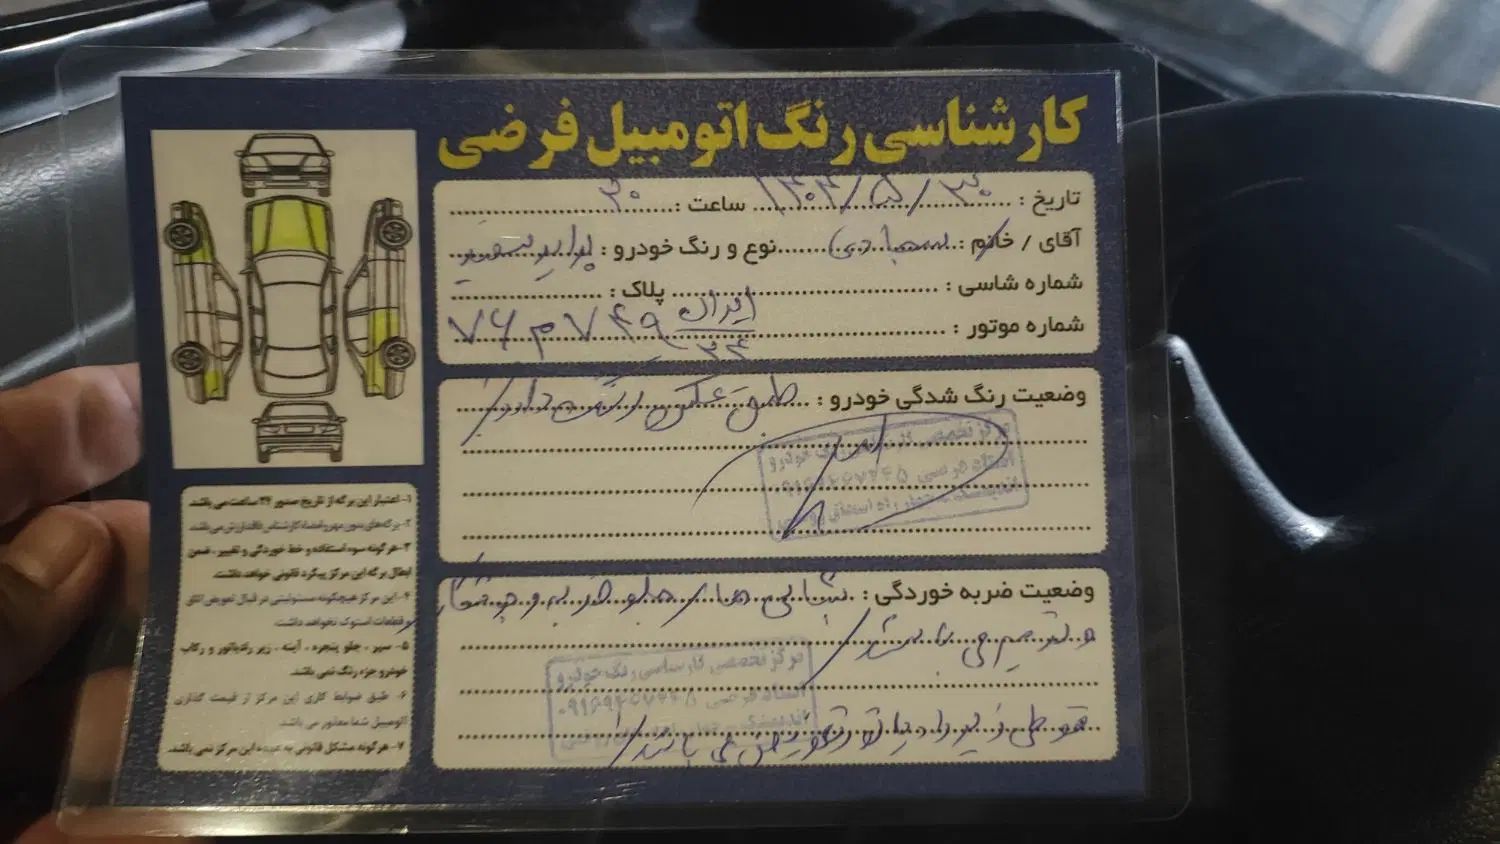 کارشناسی رنگ اتومبیل فرضی
تاریخ : ۱۴۰۴/۵/۳۰ ساعت : ۲۰
آقای / خانم : نوع و رنگ خودرو : پراید سفید
شماره شاسی : پلاک :
شماره موتور : ۷۶ م ۷۴۹ ایران ۲۴
وضعیت رنگ شدگی خودرو : طبق عکس رنگ دارد
مرکز تخصصی کارشناسی رنگ خودرو
استاد فرضی
اندیمشک - چهار راه
وضعیت ضربه خوردگی : شاسی ها از جلو ضربه خورده
و ترمیم می باشد
مرکز تخصصی کارشناسی رنگ خودرو
استاد فرضی
اندیمشک - چهار
قوطی زیر رادیاتور تعویض می باشد
۱- اعتبار این برگه از تاریخ صدور ۲۴ ساعت می باشد.
۲- برگه های بدون مهر و امضاء کارشناس فاقد ارزش می باشد.
۳- هر گونه سوء استفاده و خط خوردگی و تغییر ، ضمن
ابطال برگه این مرکز پیگرد قانونی خواهد داشت.
۴- این مرکز هیچگونه مسئولیتی در قبال تعویض اتاق
و قطعات استوک نخواهد داشت.
۵- سپر ، جلو پنجره ، آینه ، زیر رادیاتور و رکاب
خودرو جزء رنگ نمی باشد.
۶- طبق ضوابط کاری این مرکز از قیمت گذاری
اتومبیل شما معذور می باشد.
۷- هر گونه مشکل قانونی به عهده این مرکز نمی باشد.